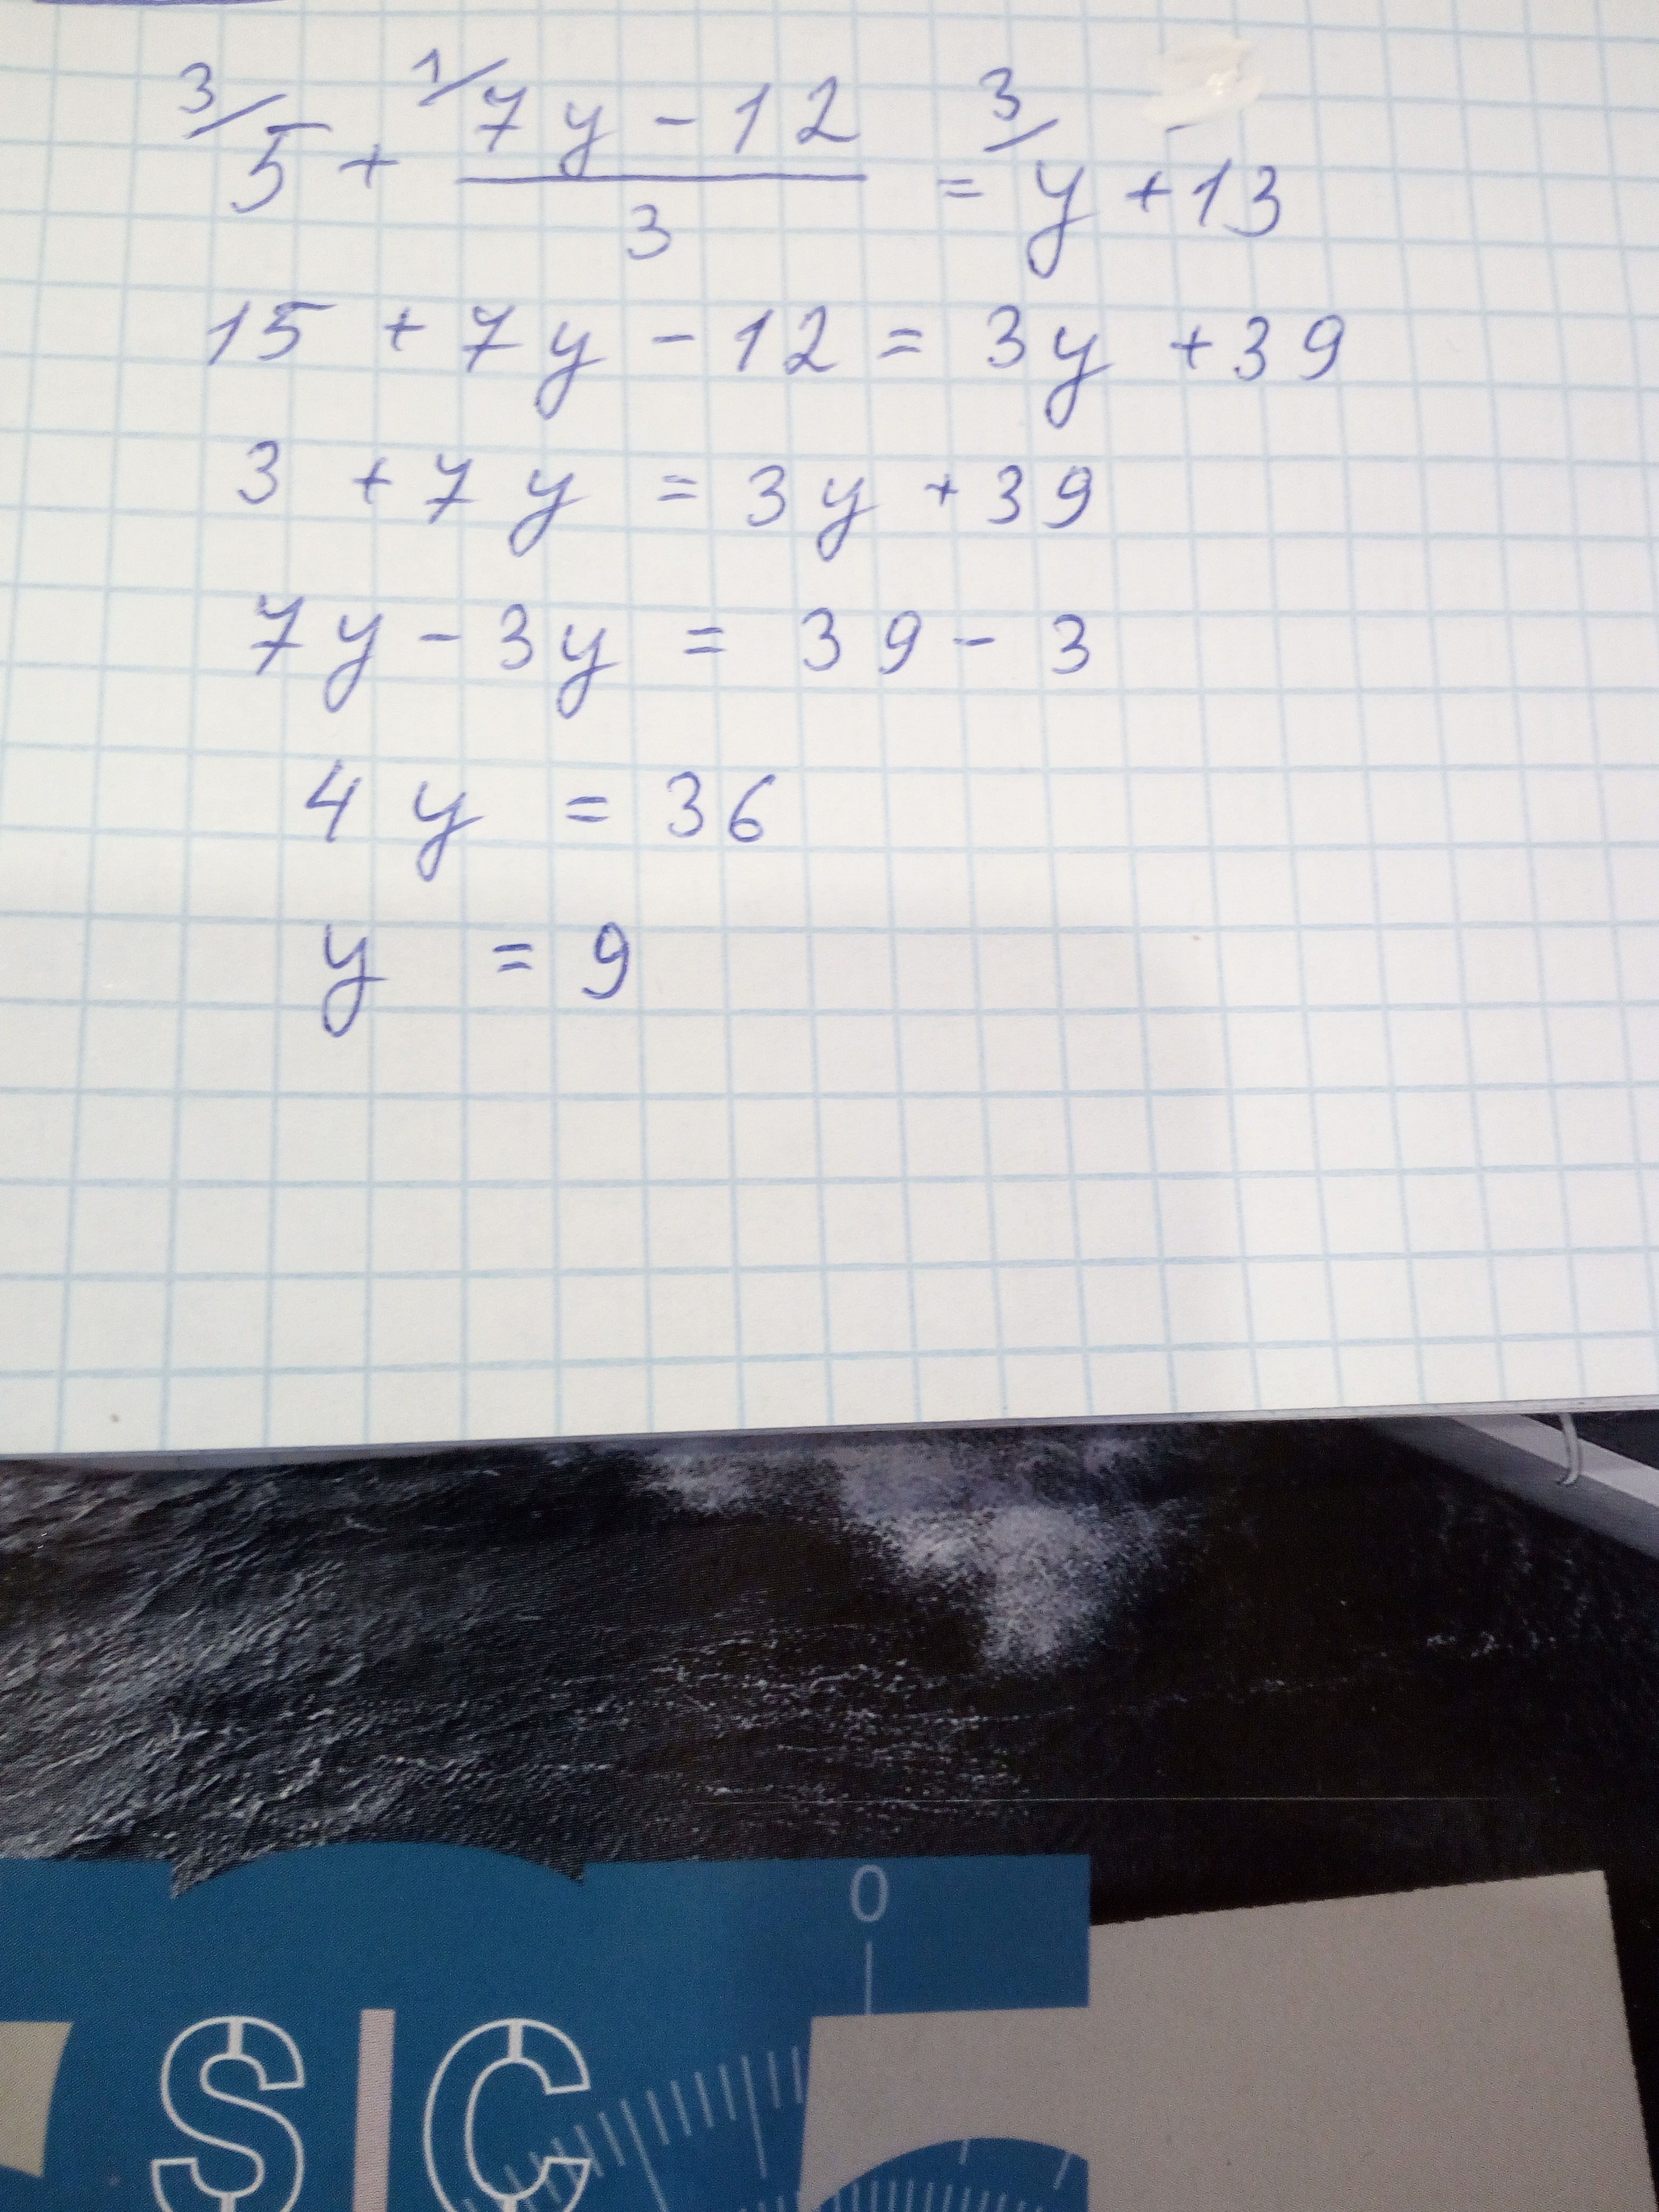 3/ 5 + 1/ 7y - 12 / 3 = 3/ y + 13
15 + 7y - 12 = 3y + 39
3 + 7y = 3y + 39
7y - 3y = 39 - 3
4y = 36
y = 9
0
SIC